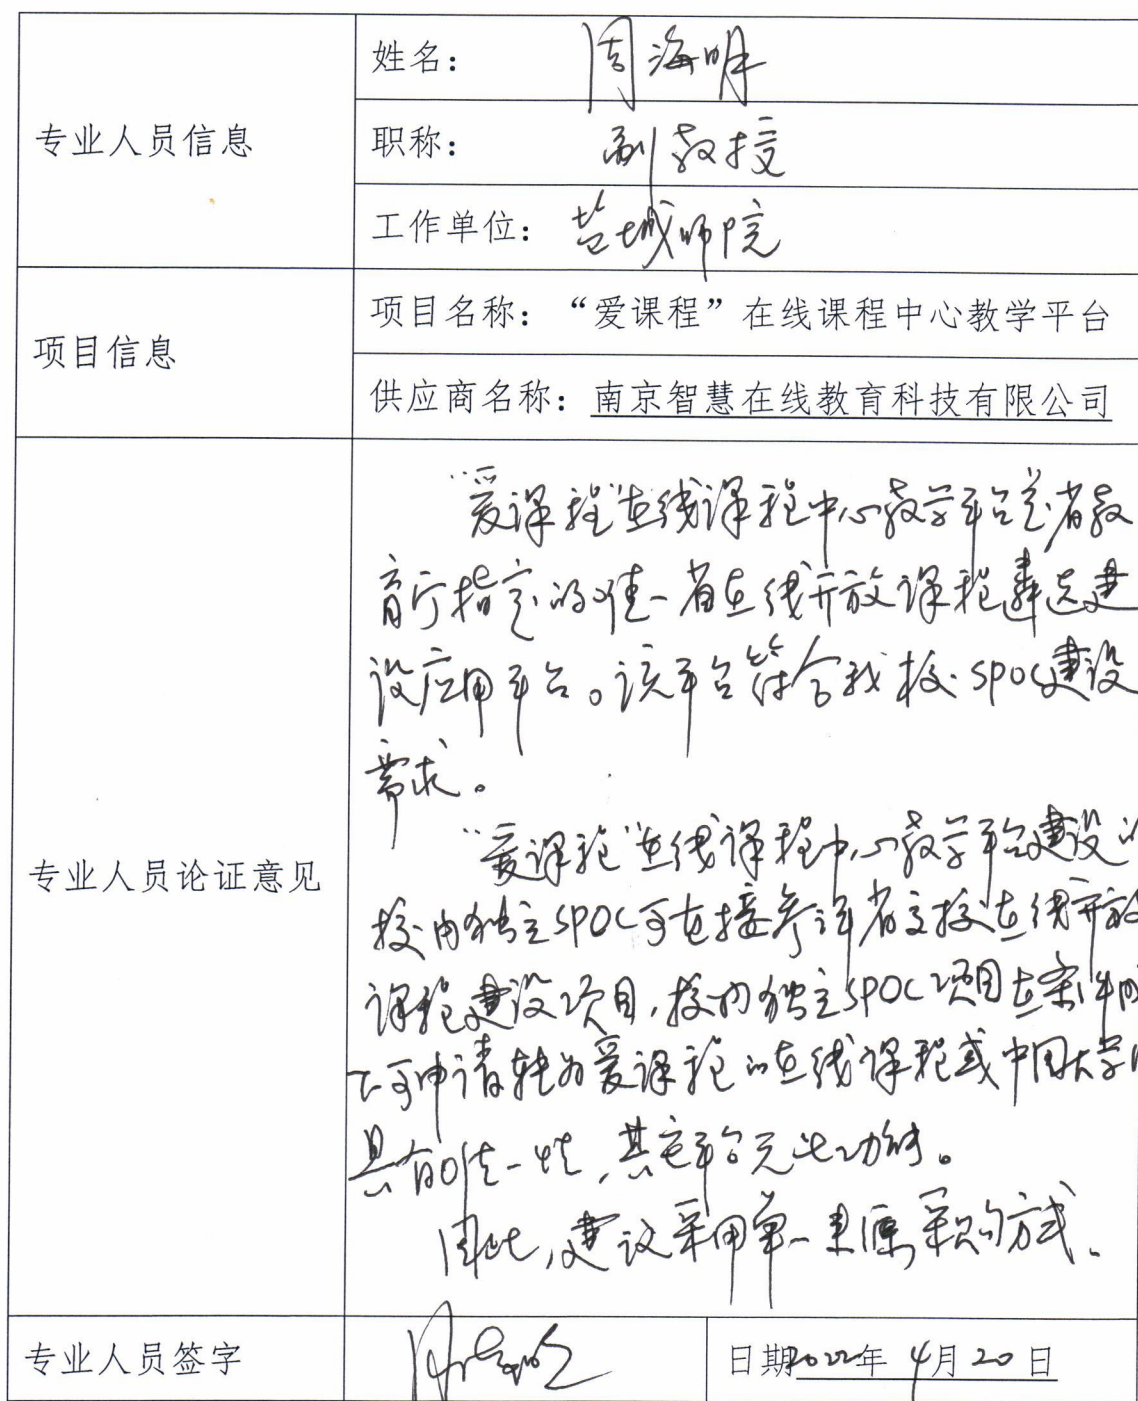 专业人员信息
姓名： 周海明
职称： 副教授
工作单位： 盐城师院
项目信息
项目名称：“爱课程”在线课程中心教学平台
供应商名称：南京智慧在线教育科技有限公司
专业人员论证意见
“爱课程”在线课程中心教学平台是省教
育厅指定的唯一省在线开放课程遴选建
设应用平台。该平台符合我校SPOC建设
需求。
“爱课程”在线课程中心教学平台建设的
校内独立SPOC可直接参评省高校在线开放
课程建设项目，校内独立SPOC项目在条件
下可申请转为爱课程的在线课程或中国大学
具有唯一性，其它平台无此功能。
因此，建议采用单一来源采购方式。
专业人员签字
日期2022年4月20日